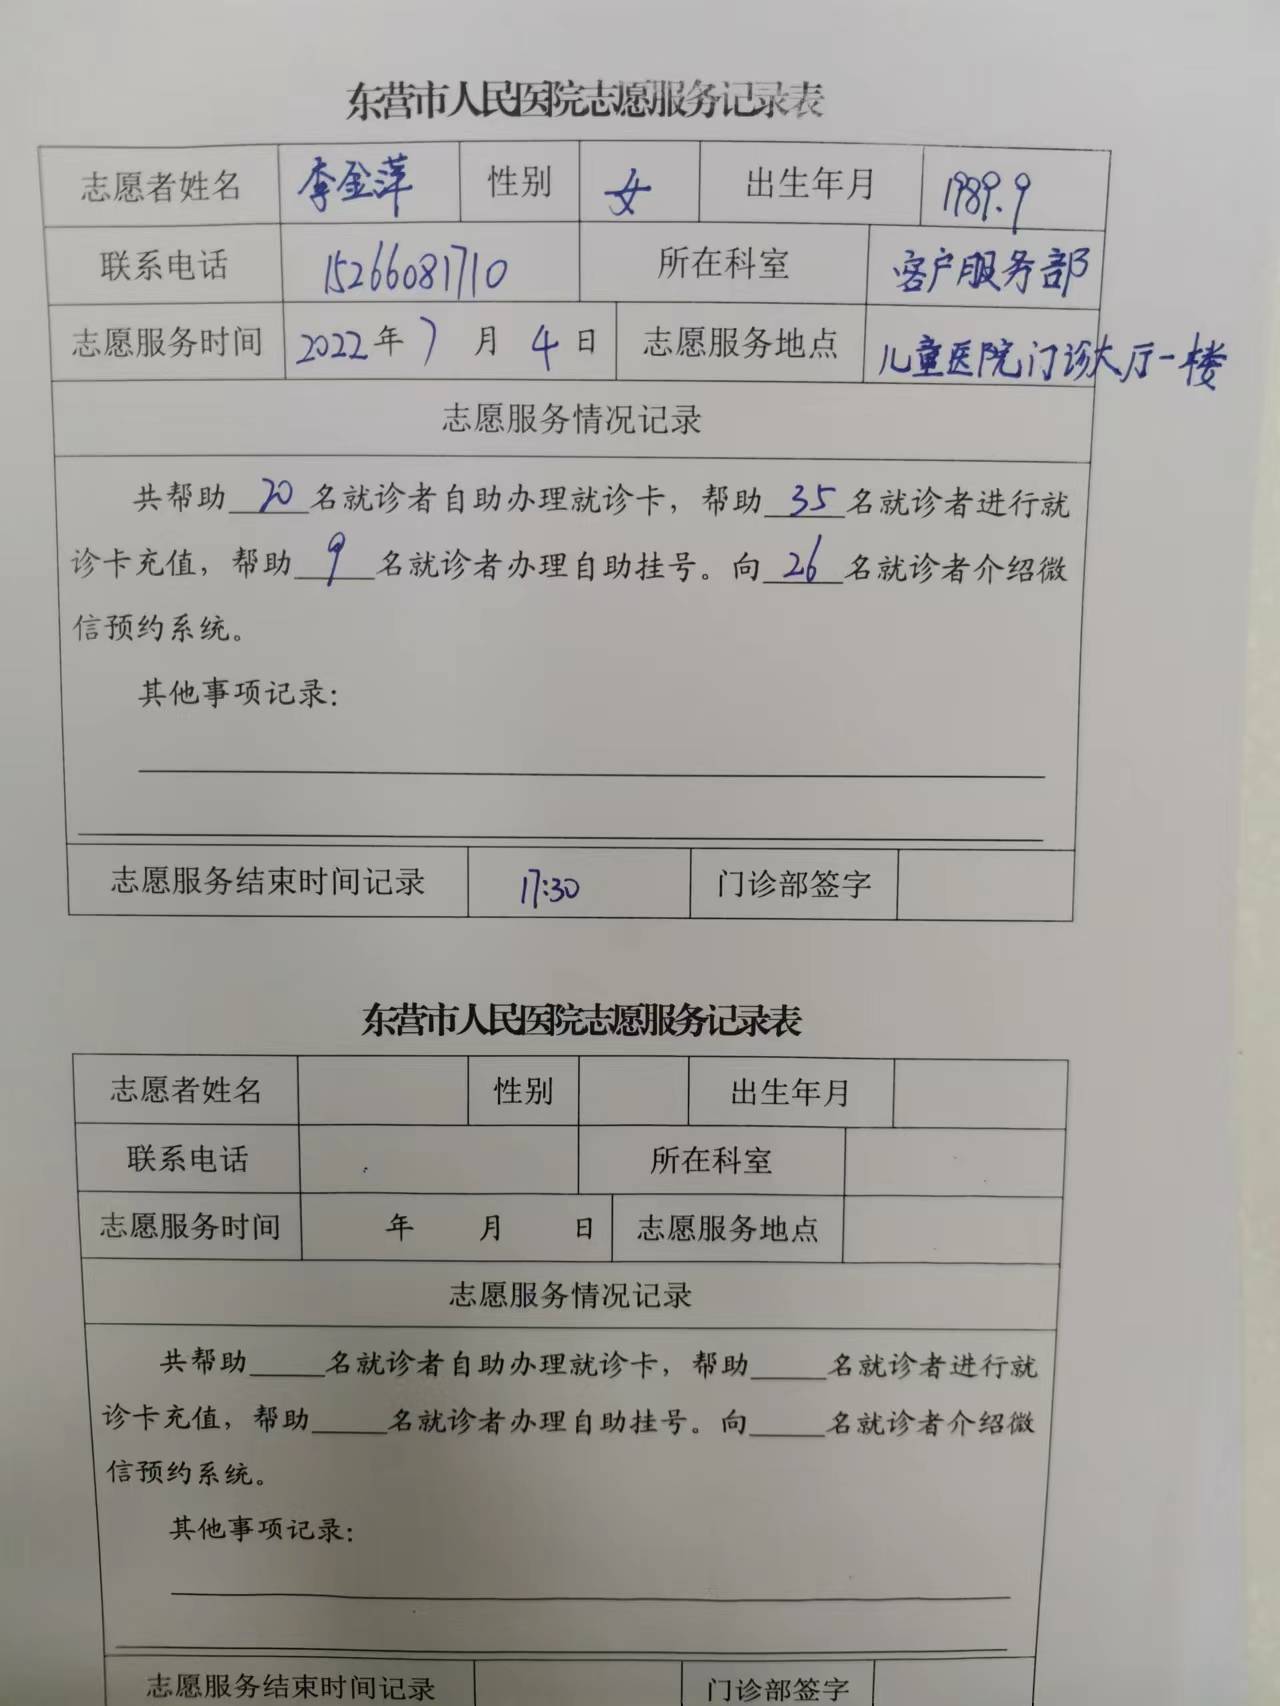 东营市人民医院志愿服务记录表
志愿者姓名 李金萍 性别 女 出生年月 1989.9
联系电话 15266081710 所在科室 客户服务部
志愿服务时间 2022年7月4日 志愿服务地点 儿童医院门诊大厅一楼
志愿服务情况记录
共帮助20名就诊者自助办理就诊卡，帮助35名就诊者进行就
诊卡充值，帮助9名就诊者办理自助挂号。向26名就诊者介绍微
信预约系统。
其他事项记录：
志愿服务结束时间记录 17:30 门诊部签字
东营市人民医院志愿服务记录表
志愿者姓名 性别 出生年月
联系电话 所在科室
志愿服务时间 年 月 日 志愿服务地点
志愿服务情况记录
共帮助_____名就诊者自助办理就诊卡，帮助_____名就诊者进行就
诊卡充值，帮助_____名就诊者办理自助挂号。向_____名就诊者介绍微
信预约系统。
其他事项记录：
志愿服务结束时间记录 门诊部签字